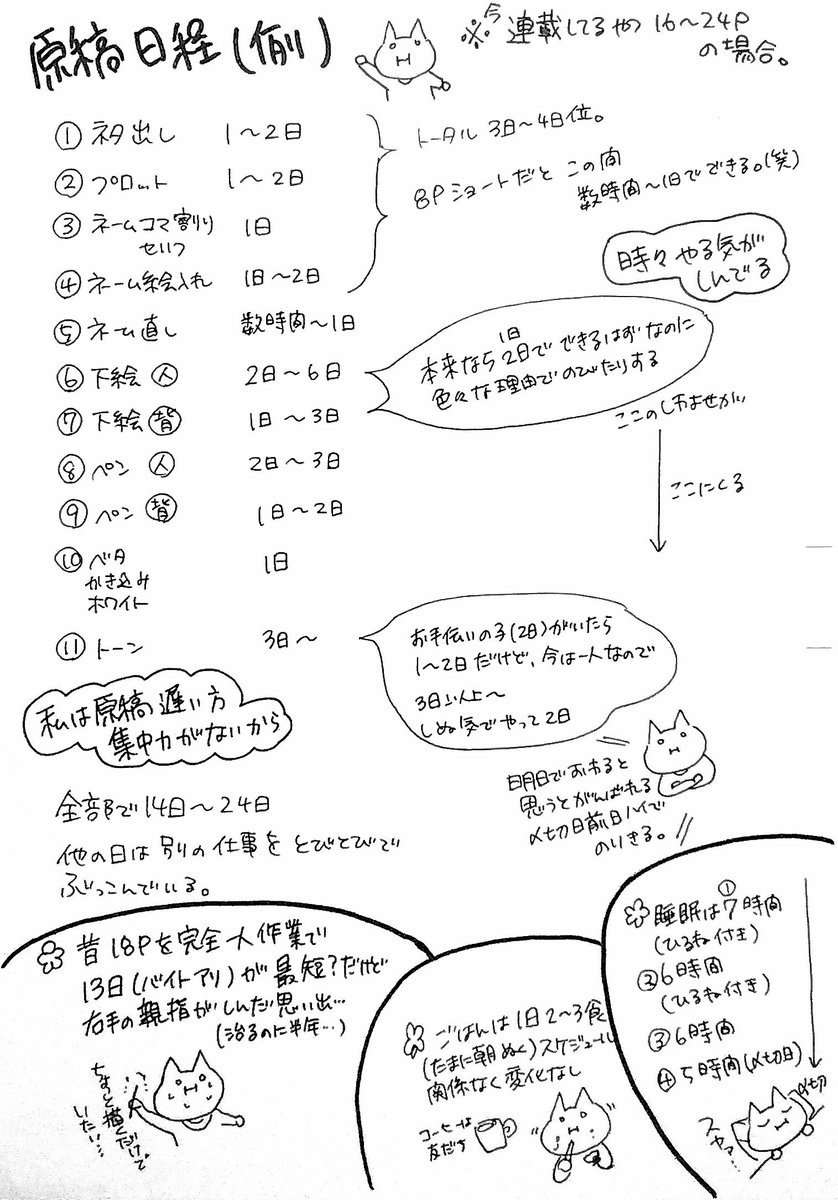 原稿日程(例)
※今連載してるやつ 16〜24P
の場合。
① ネタ出し 1〜2日
② プロット 1〜2日
③ ネームコマ割り
せりふ 1日
④ ネーム絵入れ 1日〜2日
トータル 3日〜4日位。
8Pショートだと この間
数時間〜1日でできる。(笑)
時々やる気が
しんでる
⑤ ネーム直し 数時間〜1日
⑥ 下絵 人 2日〜6日
⑦ 下絵 背 1日〜3日
1日
本来なら2日でできるはずなのに
色々な理由でのびたりする
ここのしわよせが
ここにくる
⑧ ペン 人 2日〜3日
⑨ ペン 背 1日〜2日
⑩ ベタ 1日
かき込み
ホワイト
⑪ トーン 3日〜
お手伝いの子(2日)がいたら
1〜2日だけど、今は一人なので
3日以上〜
しぬ気でやって2日
私は原稿遅い方
集中力がないから
明日でおわると
思うとがんばれる
〆切日前日ハイで
のりきる。
全部で14日〜24日
他の日は別の仕事をとびとびで
ぶっこんでいる。
昔18Pを完全一人作業で
13日(バイトアリ)が最短?だけど
右手の親指がしんだ思い出…
(治るのに半年…)
ちょっと描くだけで
いたい…
ごはんは1日2〜3食
(たまに朝ぬく)スケジュール
関係なく変化なし
コーヒーは
友だち
睡眠は①7時間
(ひるね付き)
②6時間
(ひるね付き)
③6時間
④5時間(〆切日)
〆切
スヤァ…